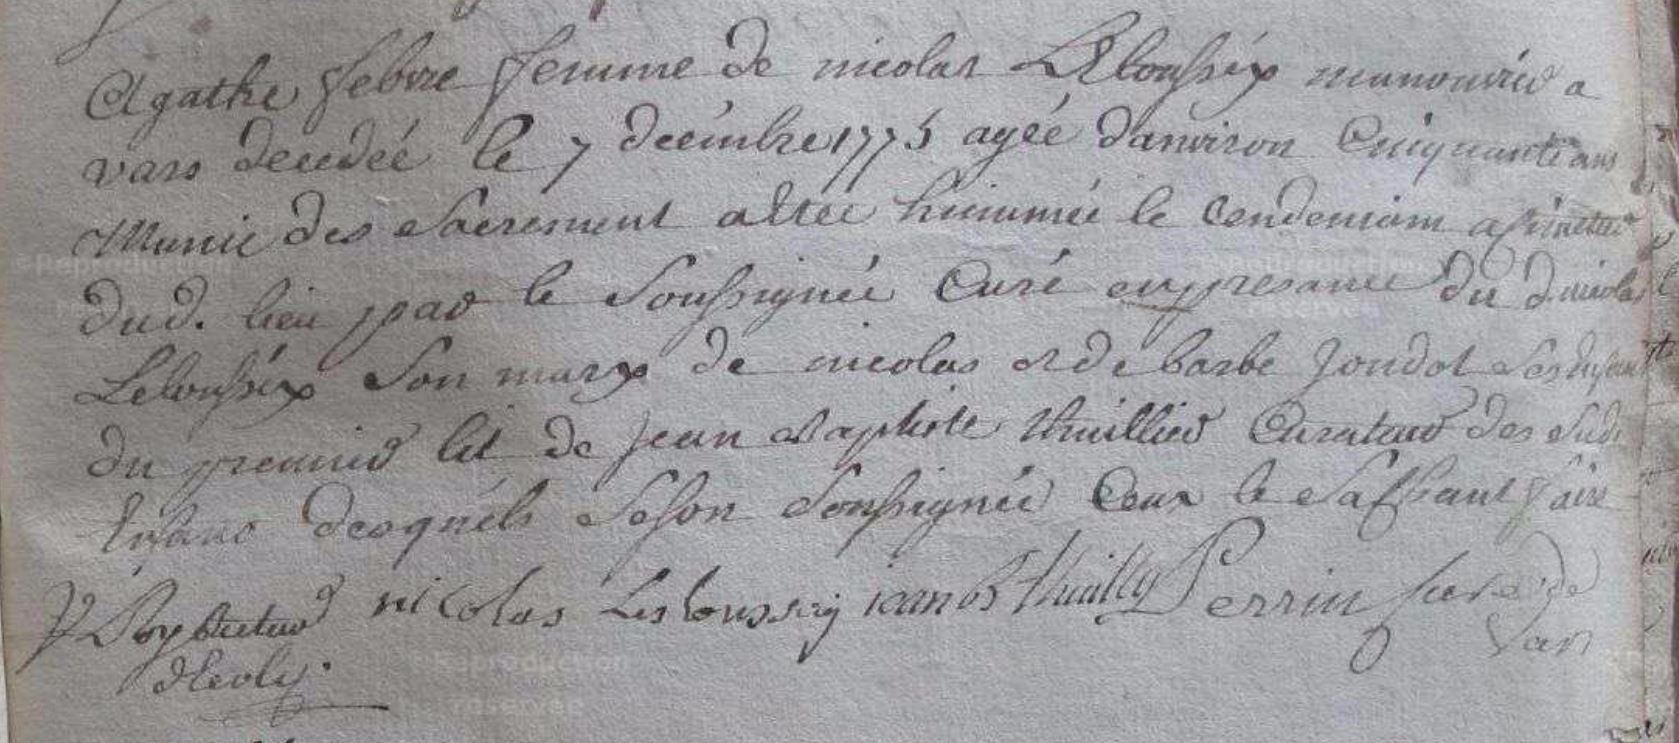 Agathe febvre femme de nicolas Leboussix manouvrié a
vars decedeé le 7 decembre 1775 ageé danviron Cinquante ans
Munie des Sacrement a Estéé hinumeé le Lendemain a
dud. lieu par le Soussigneé Curé en presance du d. nicolas
Leboussix Son marx de nicolas et de barbe Joudot Ses Enfans
du premier lit de Jean Baptiste thuillier Curateur des Sud.
Enfans desquels Se Son Soussigneé Ceux le Sachant faire
nicolas Lesboussey iean B thuilly Perrin Cure de
Var